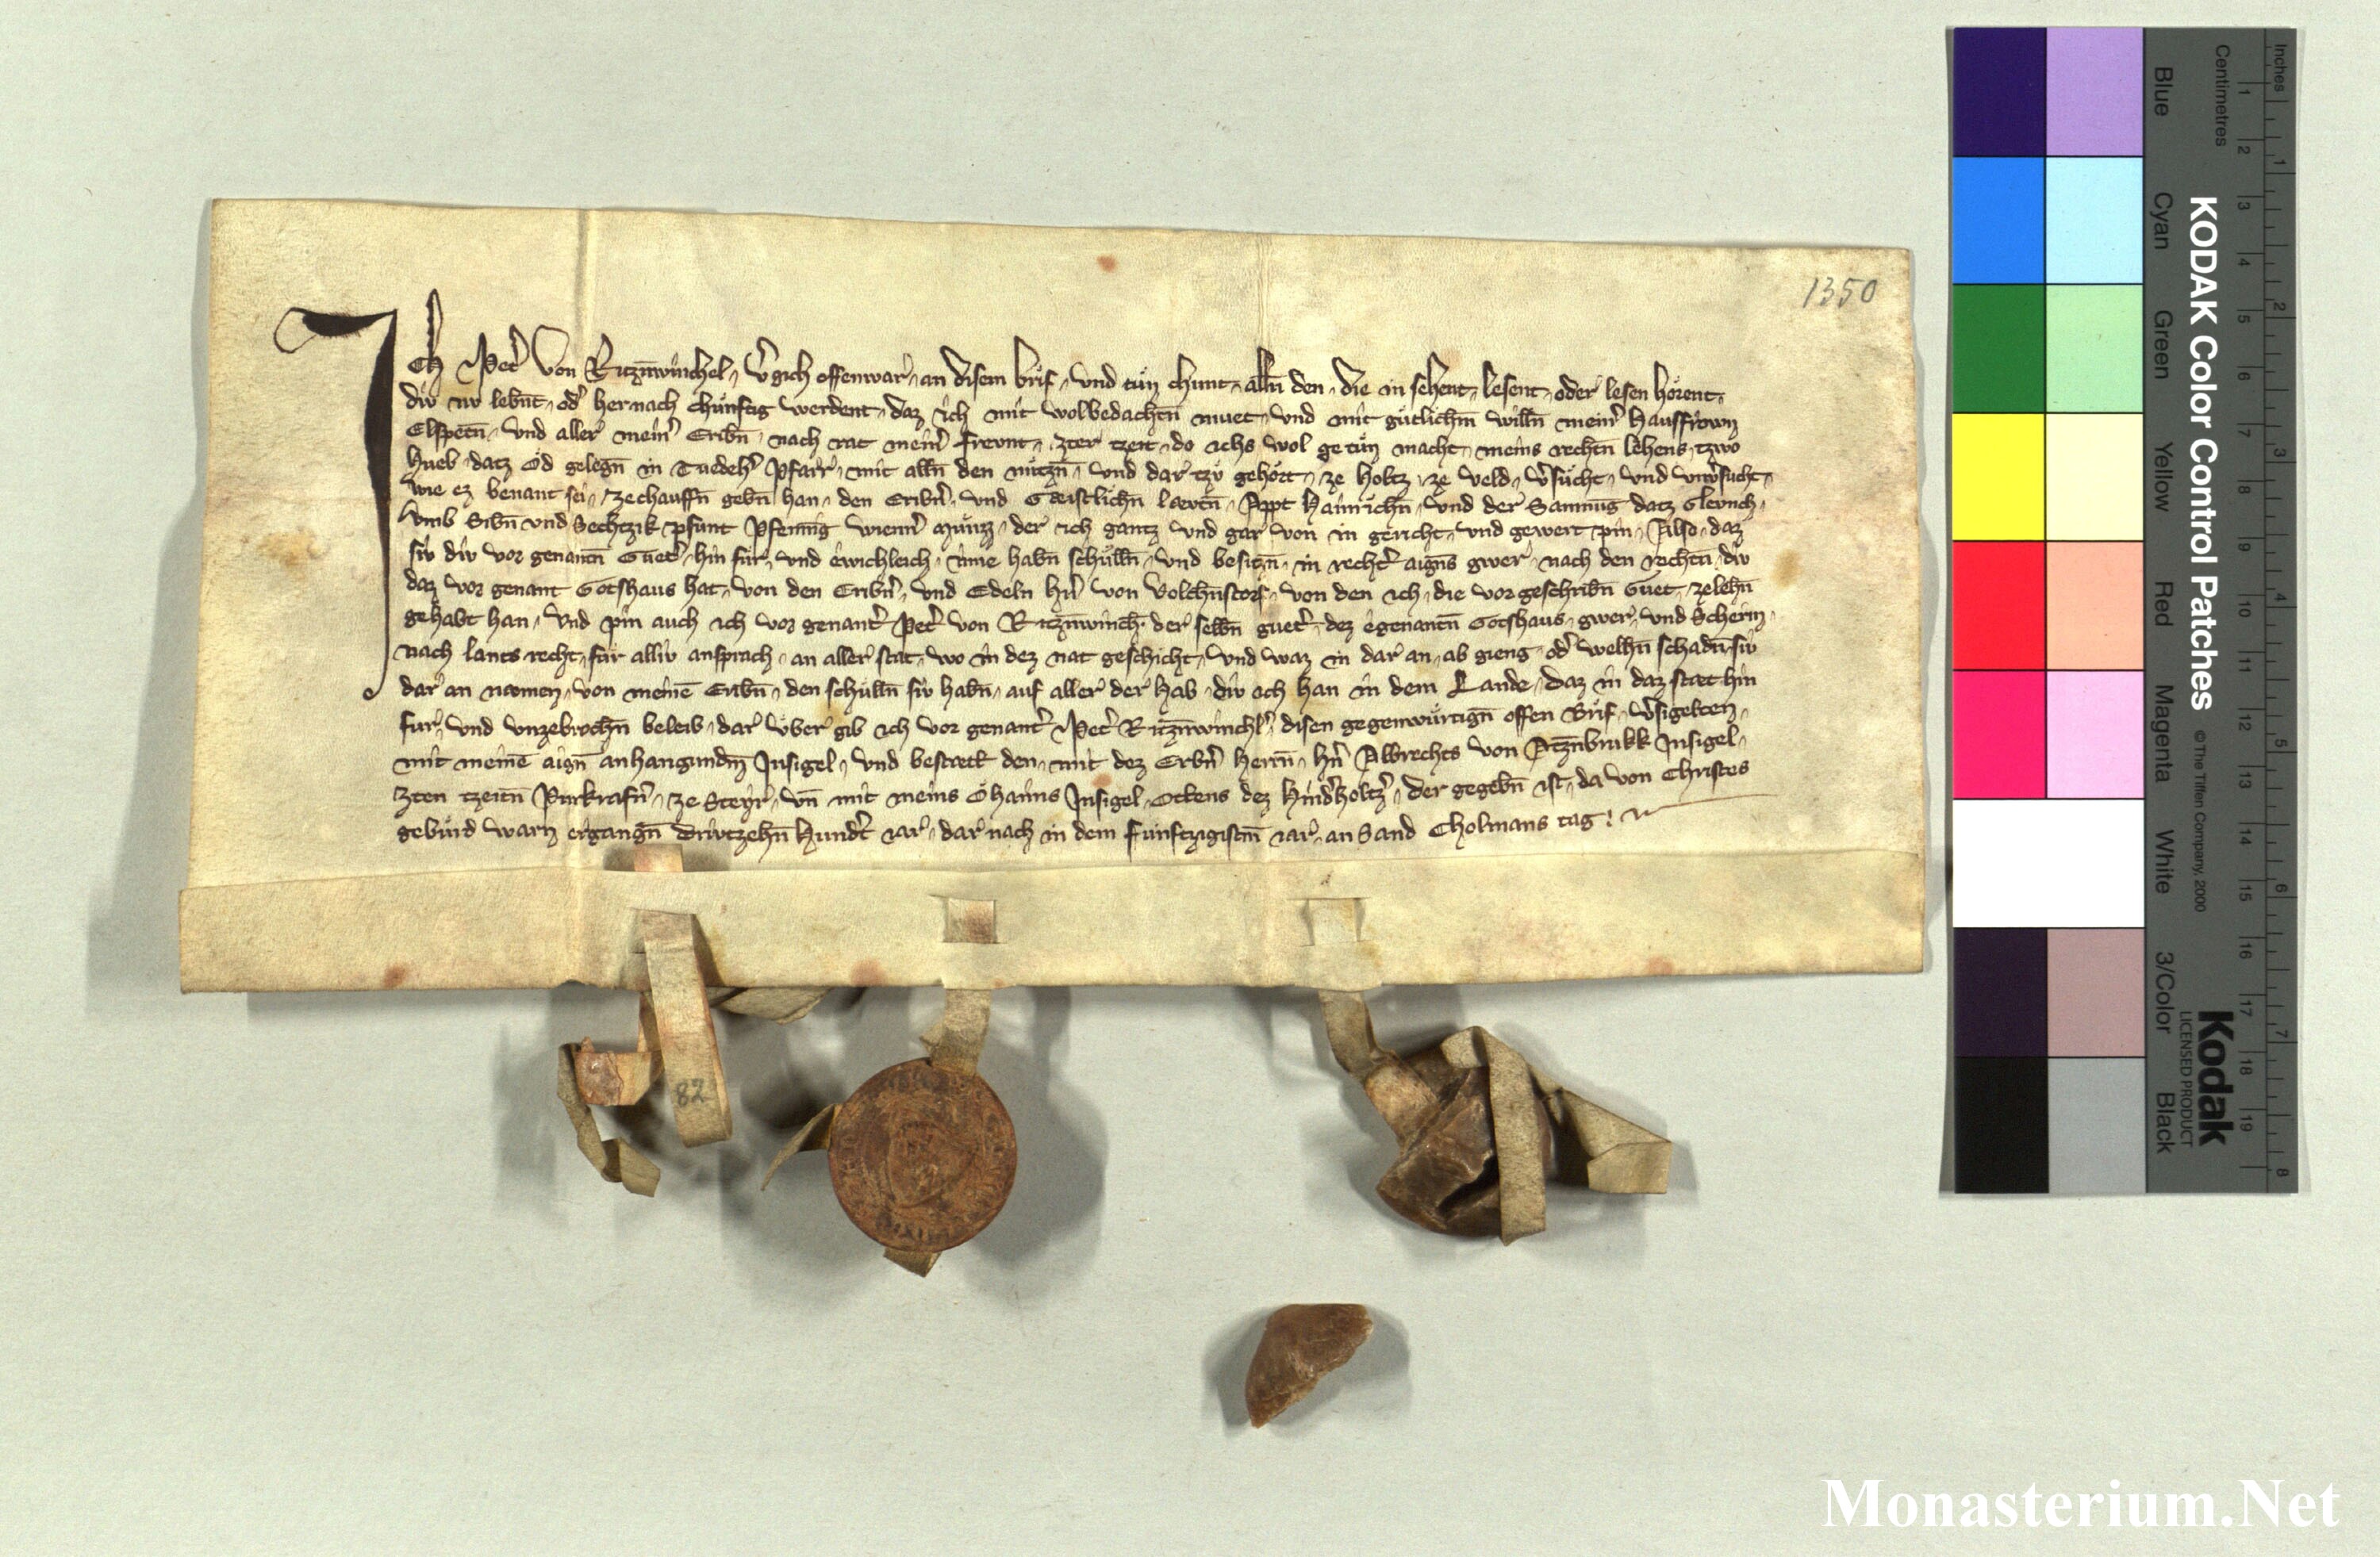 1350
Ich Pet̄ von Ritzn̄winchel, v̄gich offenwar, an disem brif, und tuͤn chunt, alln̄ den, die in sehent, lesent, oder lesen hoͤrent,
div nv lebn̄t, od̄ her nach chuͤnftig werdent, daz ich mit wolbedachtn̄ muet, und mit guͤtlichm̄ willn̄ mein̄ Hausfrown
Elspetn̄, und aller mein̄ Eribn̄, nach rat mein̄ frevnt, zter tzeit, do ichs wol getuͤn macht, meins rechtn̄ lehens, tzwo
Hueb, datz Oͤd gelegn̄ in Pfarr, mit alln̄ den nuͤtzn̄, und dar tzuͤ gehoͤrt, ze holtz, ze veld, v̄suͤcht, und unv̄suͤcht,
wie ez benant sei, ze chauffn̄ gebn̄ han, den Eribn̄, und Gaistlichn̄ laevtn̄, Appt Hainrichn̄, und der Samnūg datz Glevnch,
umb Sibn̄ und Sechtzik pfunt Pfenn̄ig wienn̄ Muͤnzz, der ich gantz und gar von in gericht, und gewert pin, Also, daz
siv div vor genantn̄ Guet̄, hin fuͤr, und ewichleich, inne habn̄ schuͤlln̄, und besitzn̄, in recht̄ aigns gwer, nach den rechtn̄, div
daz vor genant Gotshaus hat, von den Eribn̄, und Edeln Hn̄ von Volchn̄storf, von den ich, die vor geschribn̄ Guet, ze lehn̄
gehabt han, Und pin auch ich vor genant̄ Pet̄ von Ritzn̄winch̄, der selbn̄ guet̄, dez egenantn̄ Gotshaus, gwer, und Scherm,
nach lants recht, fuͤr alliv ansprach, an aller stat, wo in dez nat geschicht, Und waz in dar an, ab gieng, od̄ welhn̄ schadn̄ siv
dar an naemen, von meinē Eribn̄, den schuͤlln̄ siv habn̄, auf aller der hab, div ich han in dem Lande, Daz in daz staet hin
fur, und unzebrochn̄ beleib, dar uͤber gib ich vor genant̄ Pet̄ Ritzn̄winchl̄, disen gegenwuͤrtign̄ offen Brif, v̄sigelten,
mit meinē aign̄ anhangundm̄ Insigel, und bestaett den, mit dez Erbn̄ herrn̄, hn̄ Albrechts von Atzn̄brukk Insigel,
zten tzeitn̄ Purkrafn̄, ze Steyr, vn̄ mit meins Oͤhaims Insigel, Ottens dez Hindh̄oltz̄, der gegebn̄ ist, da von Christes
gebuͤrd warn ergangn̄ drivtzehn̄ Hundt̄ iar, dar nach in dem Funftzigistm̄ iar, an Sand Cholmans tag.
82
Inches
Centimetres
1 2 3 4 5 6 7 8 9 10 11 12 13 14 15 16 17 18 19
1 2 3 4 5 6 7 8
KODAK Color Control Patches © The Tiffen Company, 2000
Kodak
LICENSED PRODUCT
Blue Cyan Green Yellow Red Magenta White 3/Color Black
Monasterium.Net